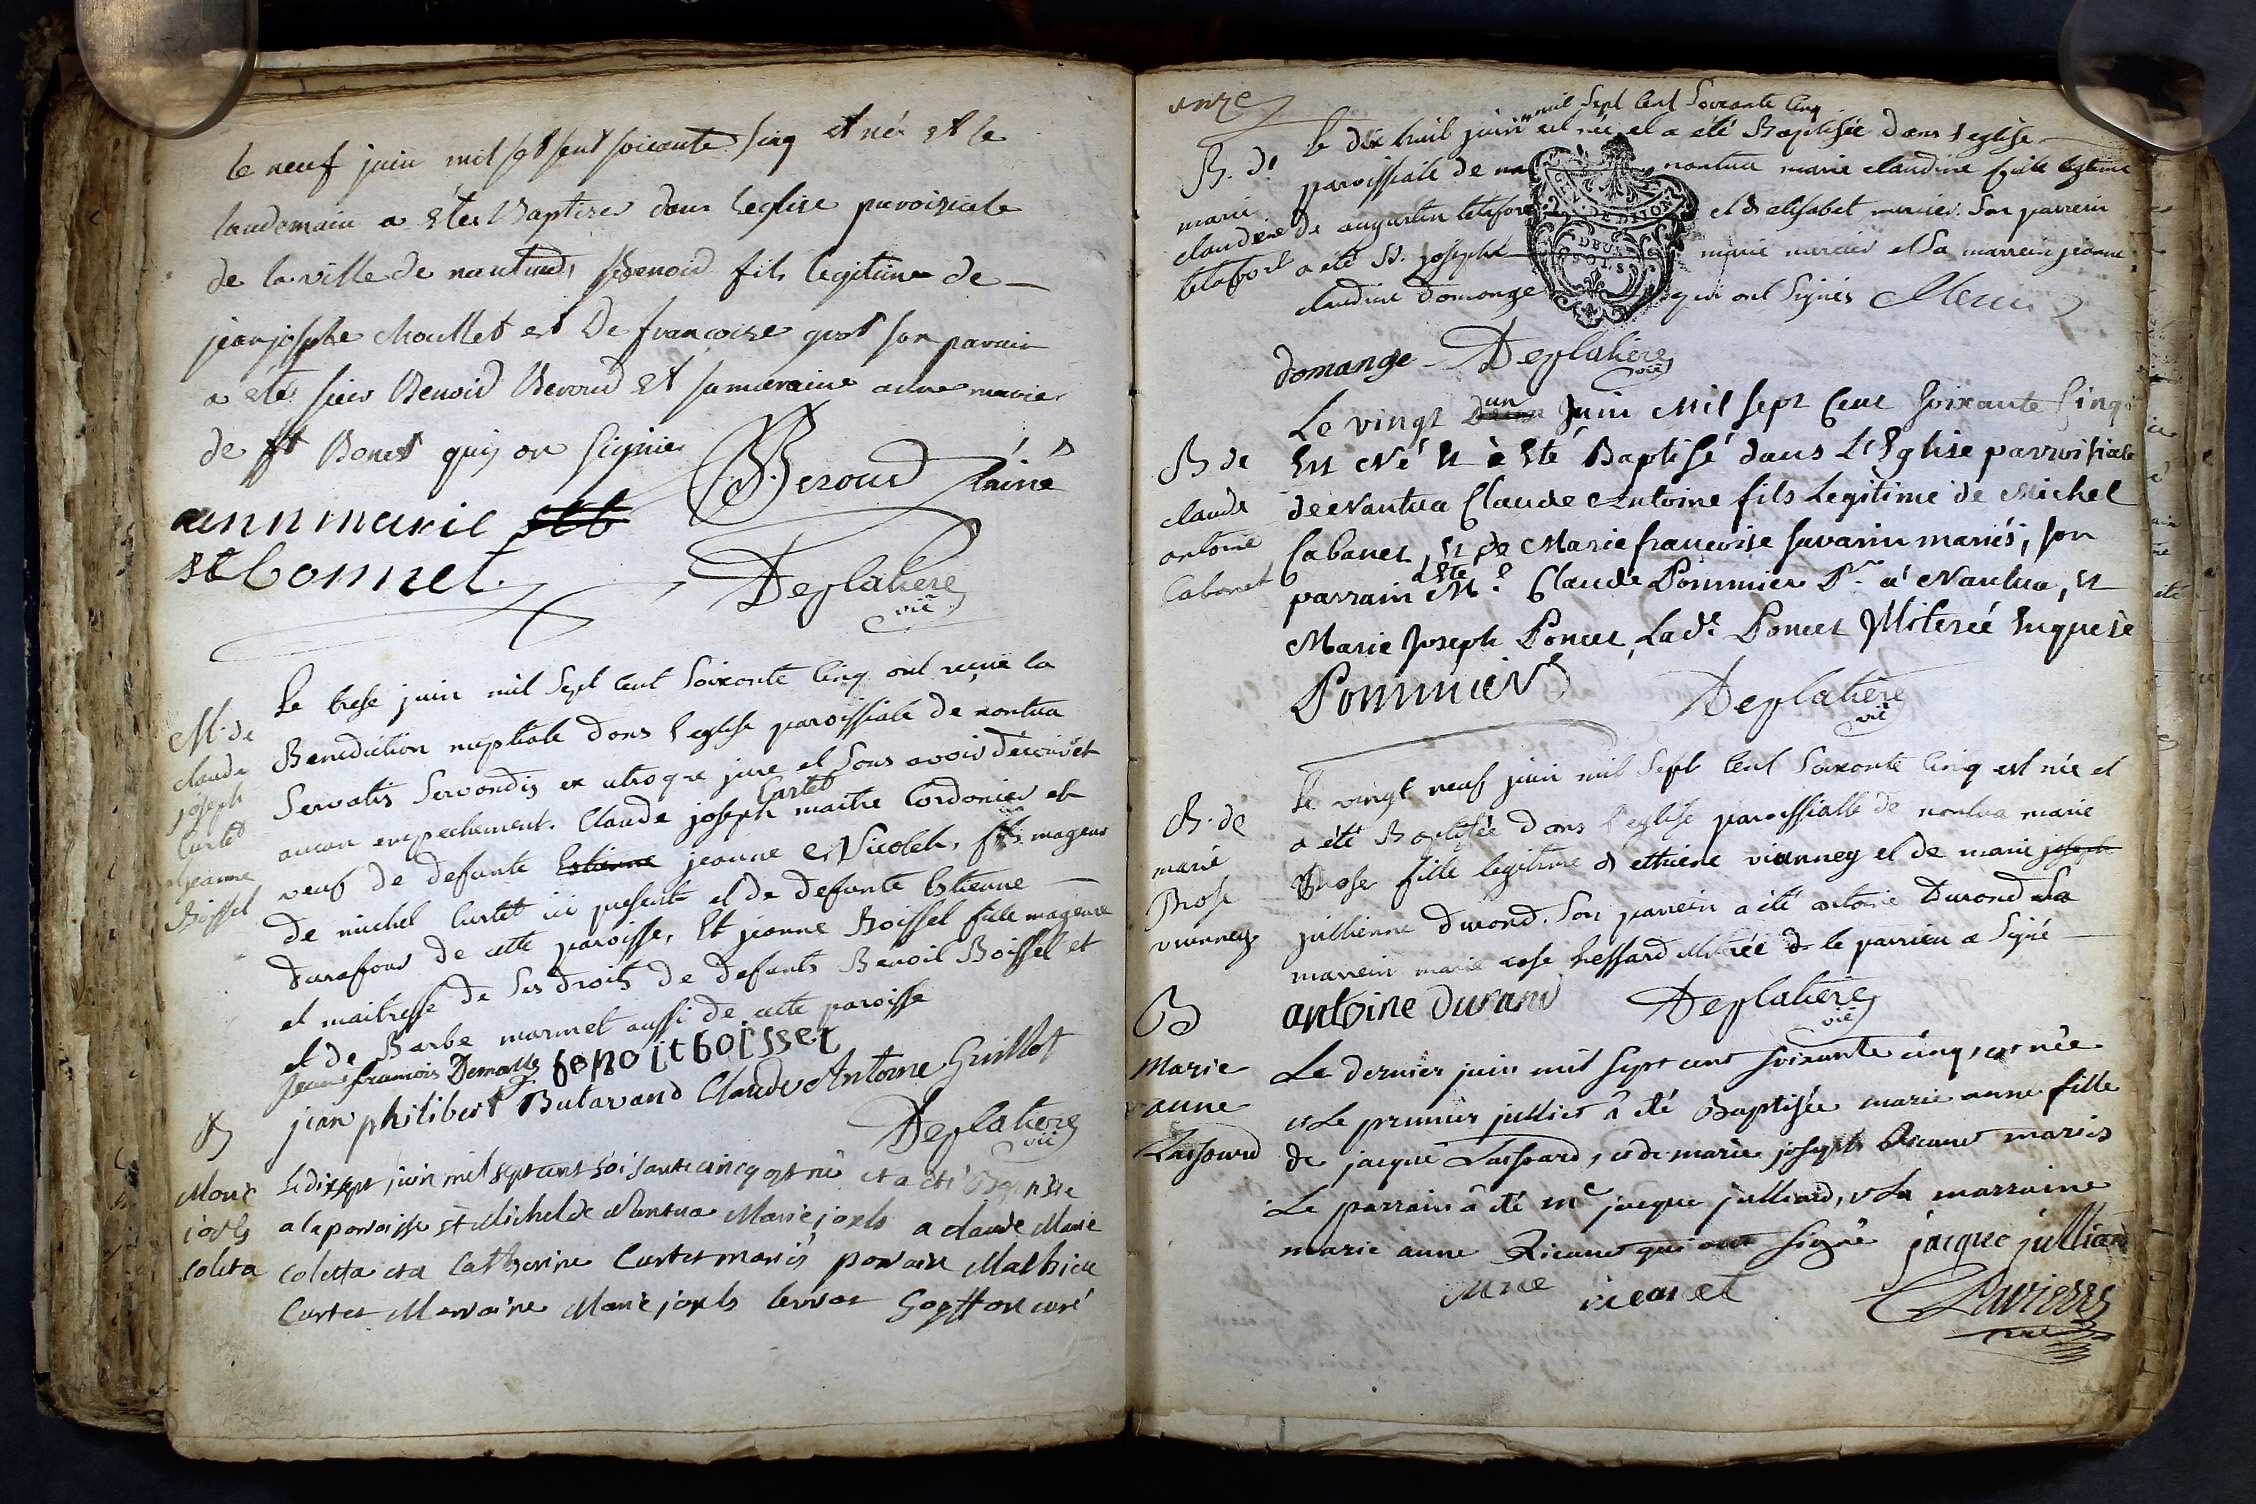 le neuf juin mil set sent soicente sinq et né et le
landemain a etée Baptisé dans leglise paroisiale
de la ville de nantua, Benoid fils legitime de
jean josephe Moullet et De françoise quot son parain
a eté sieur Benoid Beroud Et sa maraine anne marie
de st Bonet qui on signié
B Beroud lainé
annmarie stb
st bonnet
Deplatiere
vic
M. de
claude
joseph
Curtet
et jeanne
Boissel
Le trese juin mil sept cent soixante cinq ont reçue la
Benediction nuptiale dans l'eglise paroissiale de nantua
servatis servandis ex utroque jure et sans avoir découvert
aucun empechement. Claude joseph Curtet maitre Cordonier et
veuf de defunte Estienne jeanne Nicoleh, fils mageur
de michel Curtet ici present et de defunte Estienne
Durafour de cette paroisse, Et jeanne Boissel fille mageure
et maitresse de ses droits de defunts Benoit Boissel et
et de Barbe marmet aussi de cette paroisse
Jean francois Demolle benoit boisset
jean philibert Butavand Claude Antoine Guillot
Deplatiere
vic
B
Marie
josls
coleta
Ledixsept juin mil sept cent soisante cincq est né et a été Baptisée
a la paroisse st Michel de Nantua Marie josls a claude Marie
coletta et a Catherine Curtet mariés parain Mathieu
Curtet Maraine Marie josls Goyffon curé
onze
B. de
marie
claudine
letafort
Le dix huit juin mil sept cent soixante cinq est née et a été Baptisée dans l'eglise
paroissiale de nantua marie claudine fille legitime
de augustin letafore et d'elisabet mercier. Son parrein
a été Sr. joseph marie mercier et sa marrein jeanne
claudine domange qui ont signés Mercier
GEN. DE DIJON
DEUX
SOLS
domange Deplatiere
vic
B de
claude
antoine
Cabanet
Le vingt Deux un Juin Mil sept Cent soixante Cinq
Est Né Et à Eté Baptisé dans L'Eglise parroisiale
de Nantua Claude Antoine fils Legitime de Michel
Cabanet, Et de Marie françoise savarin mariés, son
parrain Eté Me. Claude Pommier Pr. à Nantua, Et
Marie Joseph Poncet, Lade. Poncet Illiterée Enquise
Pommier Deplatiere
vic
B. de
marie
Rose
vianney
Le vingt neuf juin mil sept cent soixante cinq est née et
a été Baptisée dans l'eglise paroissialle de nantua marie
Rose fille legitime d'ethiene vianney et de marie joseph
jullienne durand. Son parrein a été antoine Durand sa
marrein marie rose illitrée le parrien a signé
antoine Durand Deplatiere
vic
B
Marie
anne
Lassourd
Le dernier juin mil sept cent soixante cinq, est née
et Le premier jullier à été Baptisée marie anne fille
de jacque Lassourd, et de marie joseph Ricanet mariés
Le parrain à été me jacque julliard, et La marraine
marie anne Ricanet qui ont signé jacque julliard
ricanet